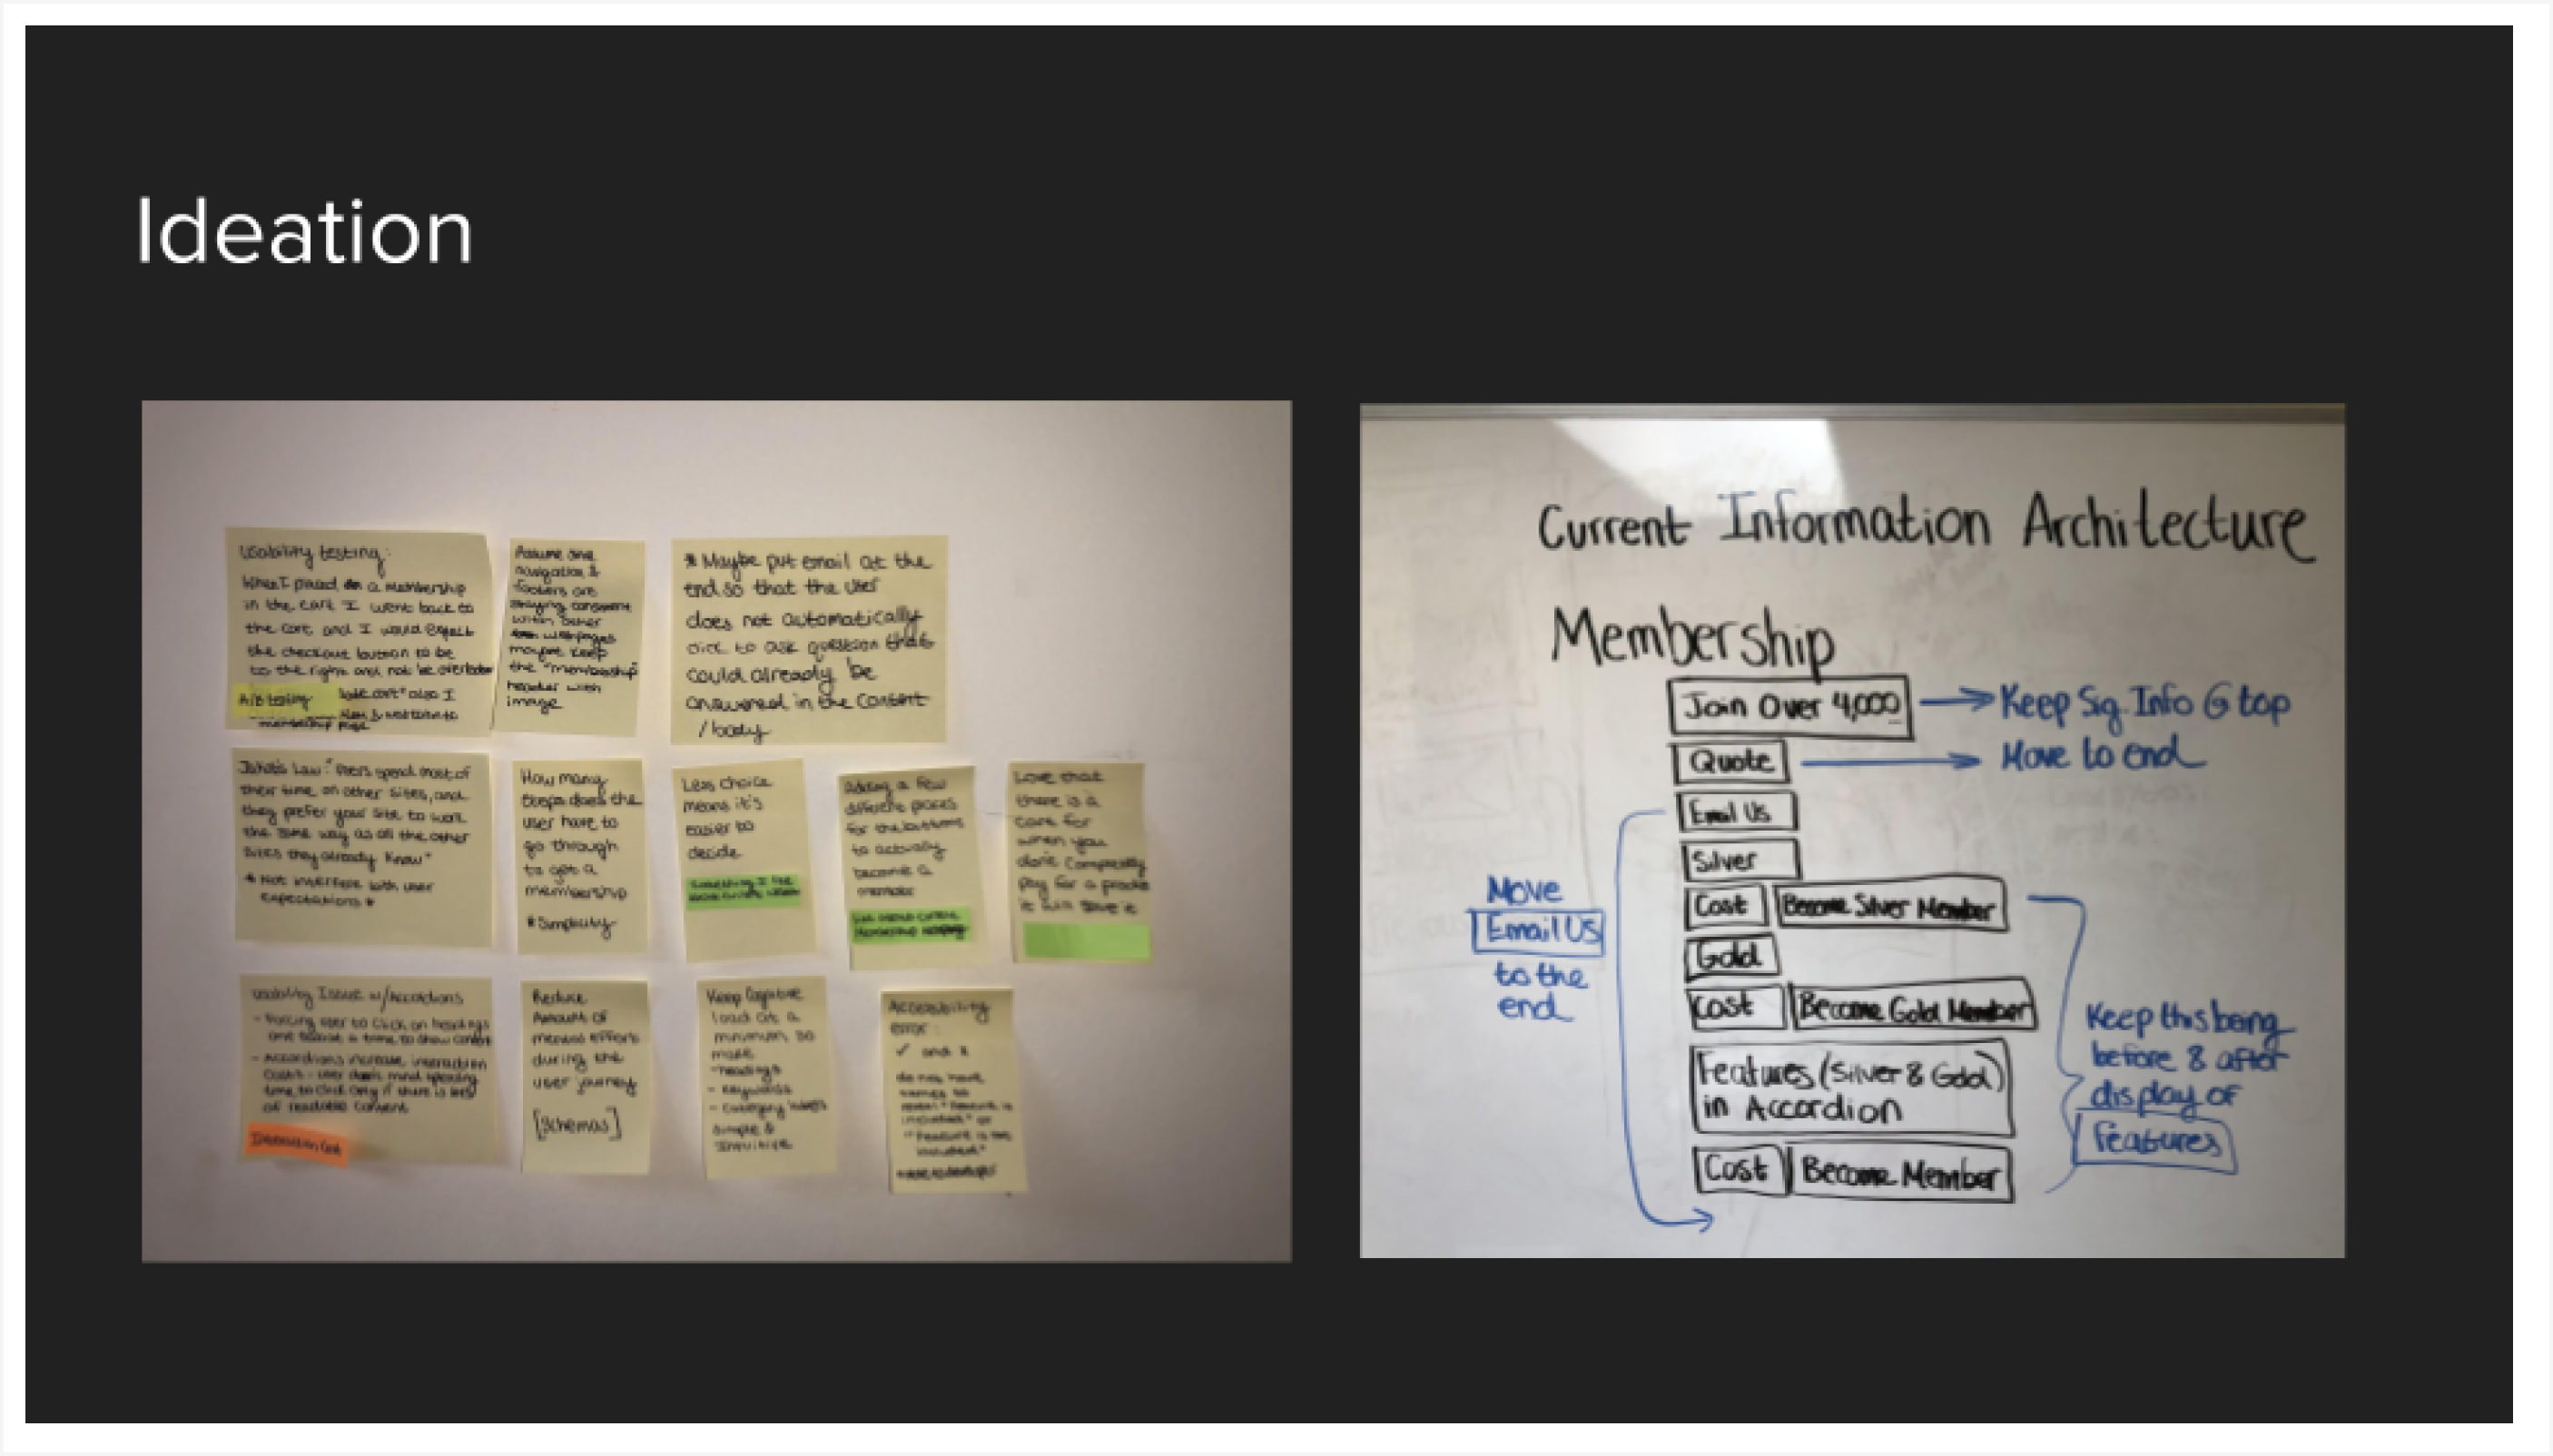 Ideation
Usability testing:
When I placed a membership
in the cart I went back to
the cart, and I would expect
the checkout button to be
to the right and not be
A/B testing
also I
membership page
Assume
navigation &
footers are
staying consistent
within other
webpages
maybe keep
the "membership"
header with
image
* Maybe put email at the
end so that the user
does not automatically
click to ask question that
could already be
answered in the content
/ body
Jakob's Law: "Users spend most of
their time on other sites, and
they prefer your site to work
the same way as all the other
sites they already know"
* Not interfere with user
expectations *
How many
steps does the
user have to
go through
to get a
membership
* Simplicity
Less choice
means it's
easier to
decide
Something I like
about
Adding a few
different places
for the buttons
to actually
become a
member
Membership
Love that
there is a
cart for
when you
don't completely
pay for a product
it will save it
Usability Issue w/Accordions
- Forcing user to click on headings
one at a time to show content
- Accordions increase interaction
costs - user don't mind spending
time to click only if there is lots
of readable content
Interaction Cost
Reduce
Amount of
mental efforts
during the
user journey
[Schemas]
Keep Cognitive
load at a
minimum so
make
- headings
- keywords
- Category labels
simple &
intuitive
Accessibility
error:
✓ and x
do not have
names to
reveal "feature is
included" or
"feature is not
included"
Current Information Architecture
Membership
Join Over 4,000 → Keep Sig. Info @ top
Quote → Move to end
Email Us
Silver
Cost Become Silver Member
Gold
Cost Become Gold Member
Features (Silver & Gold)
in Accordion
Cost Become Member
Move
Email Us
to the
end
Keep this being
before & after
display of
Features